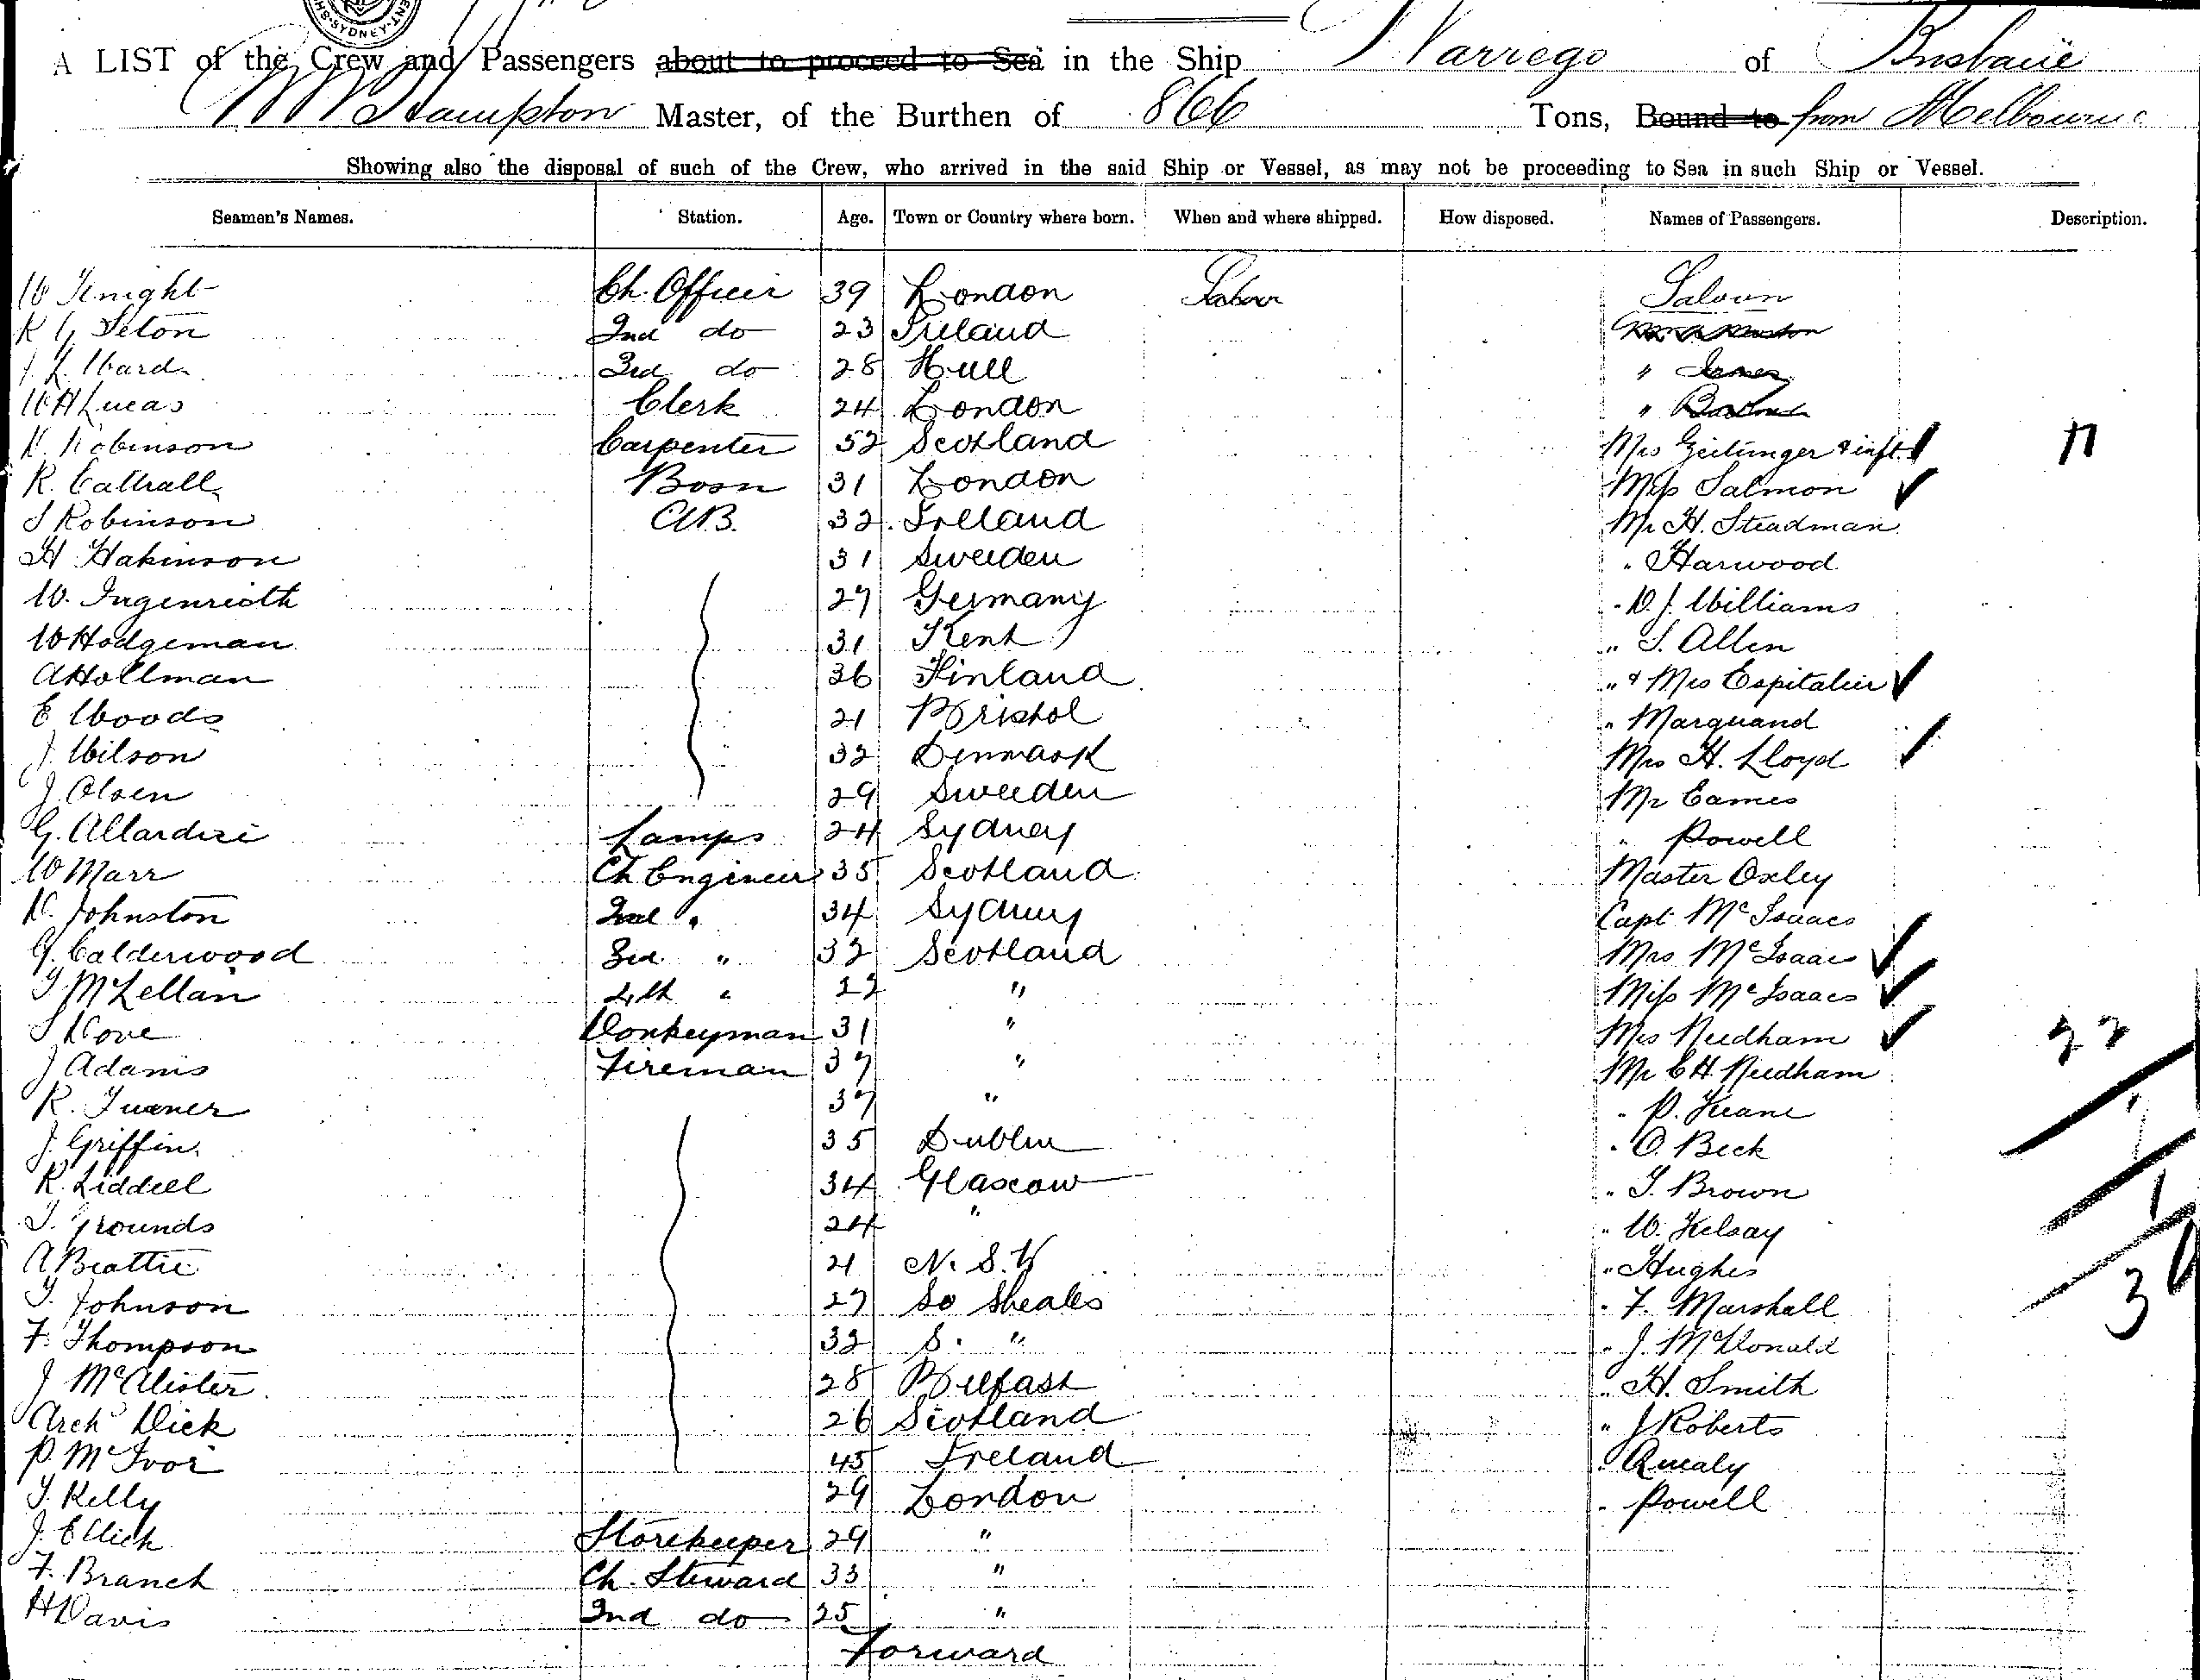 SYDNEY
A LIST of the Crew and Passengers about to proceed to Sea in the Ship Warrego of Brisbane
Hampton Master, of the Burthen of 866 Tons, Bound to from Melbourne
Showing also the disposal of such of the Crew, who arrived in the said Ship or Vessel, as may not be proceeding to Sea in such Ship or Vessel.
Seamen's Names. Station. Age. Town or Country where born. When and where shipped. How disposed. Names of Passengers. Description.
W Knight Ch. Officer 39 London Saloon
K G Seton 2nd do 23 Ireland
J. L. Ward 3rd do 28 Hull "
W H Lucas Clerk 24 London "
D. Robinson Carpenter 52 Scotland Mrs Geilinger & inft 17
R. Cattrall Bosn 31 London Miss Salmon
S Robinson A.B. 32 Ireland Mr H. Steadman
H Hakinson 31 Sweeden " Harwood
W. Ingenrieth 27 Germany " D. J. Williams
W Hodgeman 31 Kent " S. Allen
A Hollman 36 Finland " & Mrs Espitalier
E Woods 21 Bristol " Marquand
J. Wilson 32 Denmark Mrs H. Lloyd
J. Olsen 29 Sweeden Mr Eames
G. Allardice Lamps 24 Sydney " Powell
W Marr Ch Engineer 35 Scotland Master Oxley
D. Johnston 2nd " 34 Sydney Capt McIsaacs
G. Calderwood 3rd " 32 Scotland Mrs McIsaacs
T. McLellan 4th " 22 " Miss McIsaacs
S Dove Donkeyman 31 " Mrs Needham 22
J Adams Fireman 37 " Mr C H Needham
R. Turner 37 " " P. Keane
J. Griffin 35 Dublin " O. Beck
R. Liddell 34 Glascow " T. Brown
T. Grounds 24 " " W. Kelsay
A Beattie 21 N. S. W " Hughes
T. Johnson 27 So Sheales " F. Marshall
F. Thompson 32 S. " " J. McDonald
J McAlister 28 Belfast " H. Smith
Archd Dick 26 Scotland " J Roberts
P. McIvor 45 Ireland " Quealy
T. Kelly 29 London " Powell
J. Ellich Storekeeper 29 "
F. Branch Ch. Steward 33 "
H Davis 2nd do 25 "
Forward